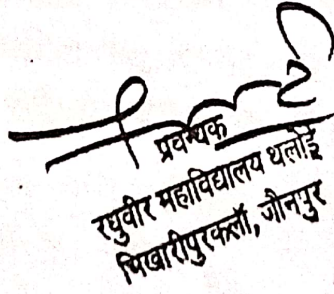 प्रवन्धक
रघुवीर महाविद्यालय थलोई
भिखारीपुरकलॉ, जौनपुर